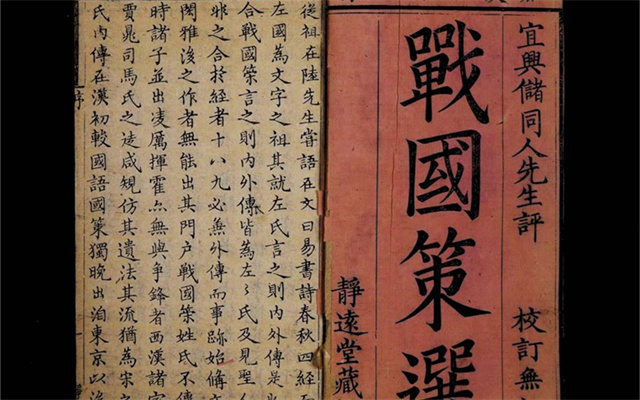 宜興儲同人先生評 校訂無
戰國策選
靜遠堂藏
從祖在陸先生嘗語在文曰易書詩春秋四經
左國為文字之祖其就左氏言之則內外傳是
合戰國策言之則內外傳皆為左〻氏及見聖人
非之合於經者十八九必無外傳而事跡始備文
閎雅後之作者無能出其門戶戰國策姓氏不傳
時諸子並出凌厲揮霍無與爭鋒者西漢諸
賈晁司馬氏之徒咸規仿其遺法其流猶為宋之
氏內傳在漢初較國語國策獨晚出洎東京以
序